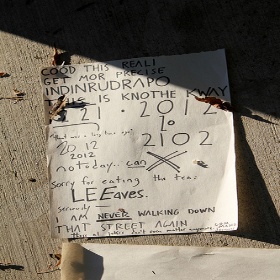 GOOD THIS REALI
GET MOR PRECISE
INDINRUDRAPO
THIS IS KNOTHE KWAY
21 · 2012
to
2102
2012
2012
no today.. can
sorry for eating the tea
LEEaves.
seriously —
I AM NEVER WALKING DOWN
THAT STREET AGAIN